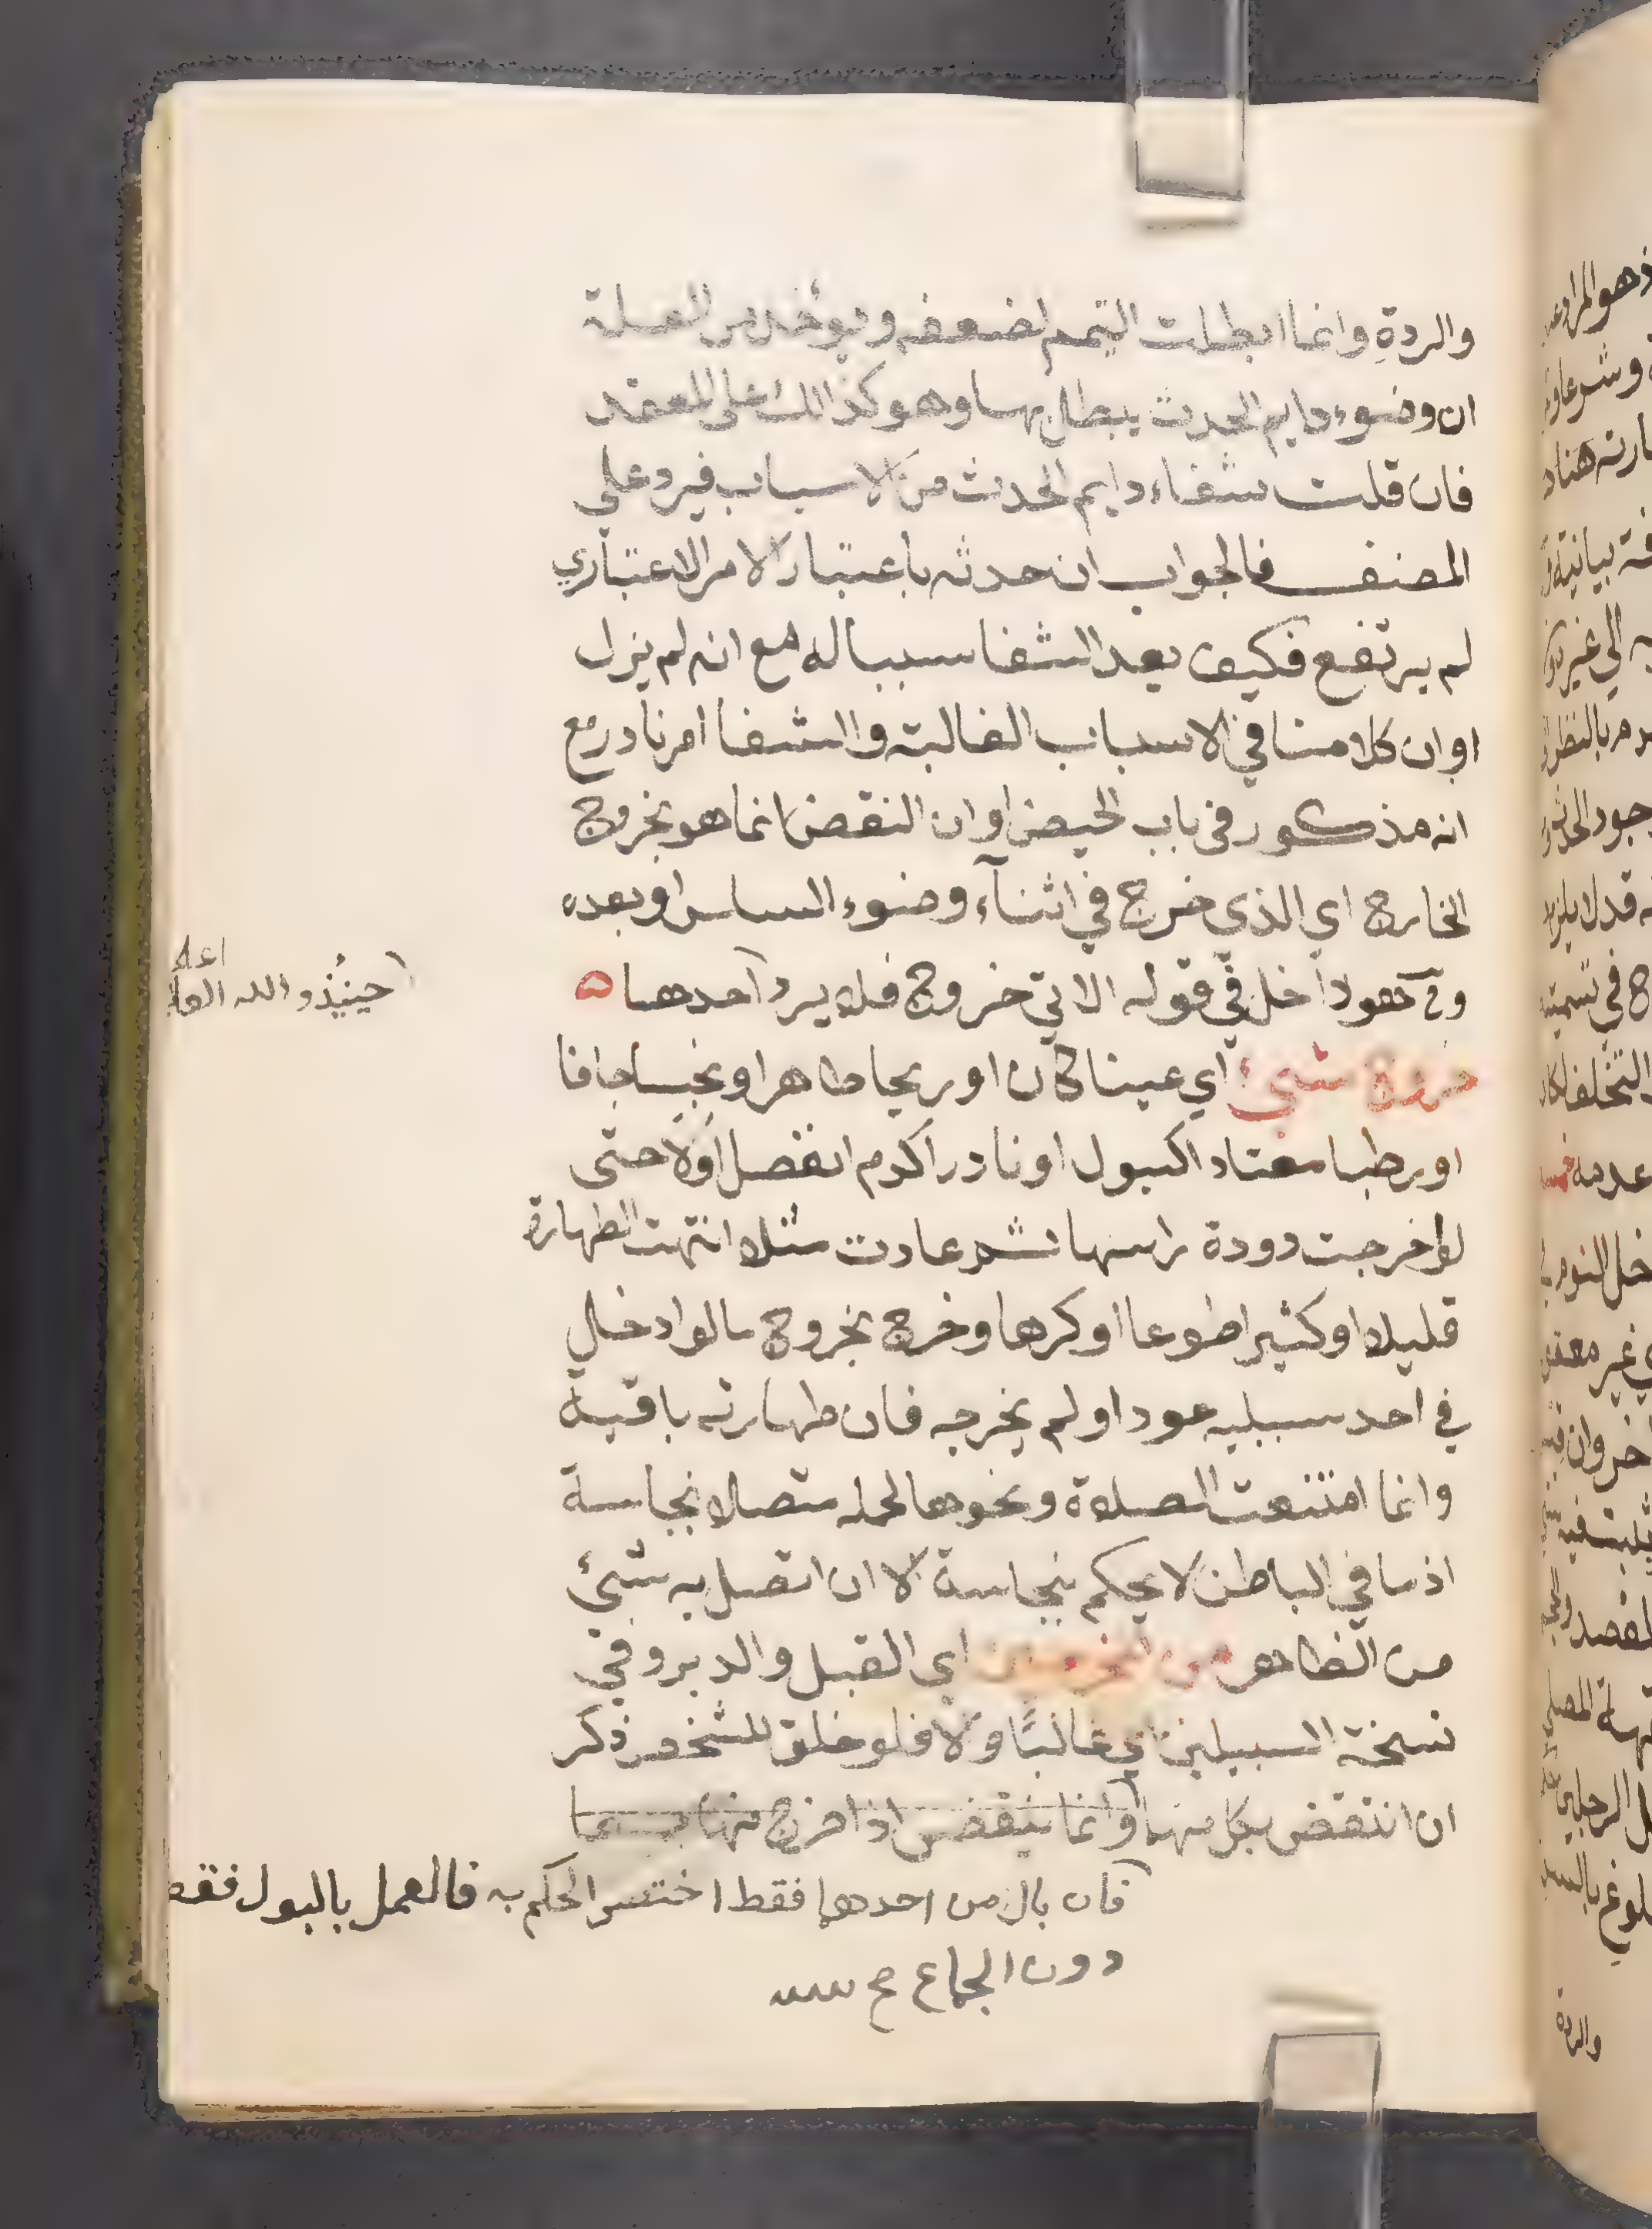 والردة وانما ابطلت التيمم لضعفه ويوخذ من العلة
ان وضوء دايم الحدث يبطل بها وهو كذالك على المعتمد
فان قلت شفاء دايم الحدث من الاسباب فيرد على
المصنف فالجواب ان حدثه باعتبار الامر الاعتباري
لم يرتفع فكيف يعد الشفا سببا له مع انه لم يزل
او ان كلامنا في الاسباب الغالبة والشفا امر نادر مع
انه مذكور في باب الحيض او ان النقض انما هو بخروج
الخارج اي الذي خرج في اثنآء وضوء السلس او بعده
وح فهو داخل في قوله الاتي خروج فلا يرد احدها ه
حينئذ والله اعلم
خروج شيء اي عينا كان او ريحا طاهرا او نجسا جافا
او رطبا معتادا كبول او نادرا كدم انفصل اولا حتى
لو اخرجت دودة راسها ثم عادت مثلا انتهت الطهارة
قليلا او كثيرا طوعا او كرها وخرج بخروج ما لو ادخل
في احد سبيليه عودا ولم يخرجه فان طهارته باقية
وانما امتنعت الصلاة ونحوها لحمله متصلا بنجاسة
اذ ما في الباطن لا يحكم بنجاسة الا ان اتصل به شئ
من الظاهر من المخرجين اي القبل والدبر وفي
نسخة السبيلين اي غالبًا والا فلو خلق للشخص ذكر
ان انتقض بكل منهما وانما ينقض اذا خرج منهما
فان بال من احدهما فقط اختص الحكم به فالعمل بالبول فقط
دون الجماع ح